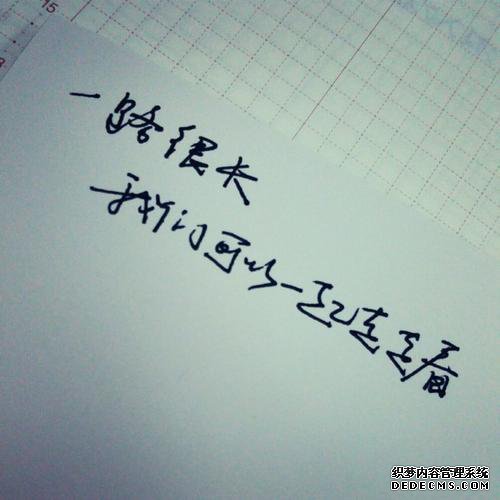 15
一路很长
我们可以一起走走看
织梦内容管理系统
DEDECMS.COM